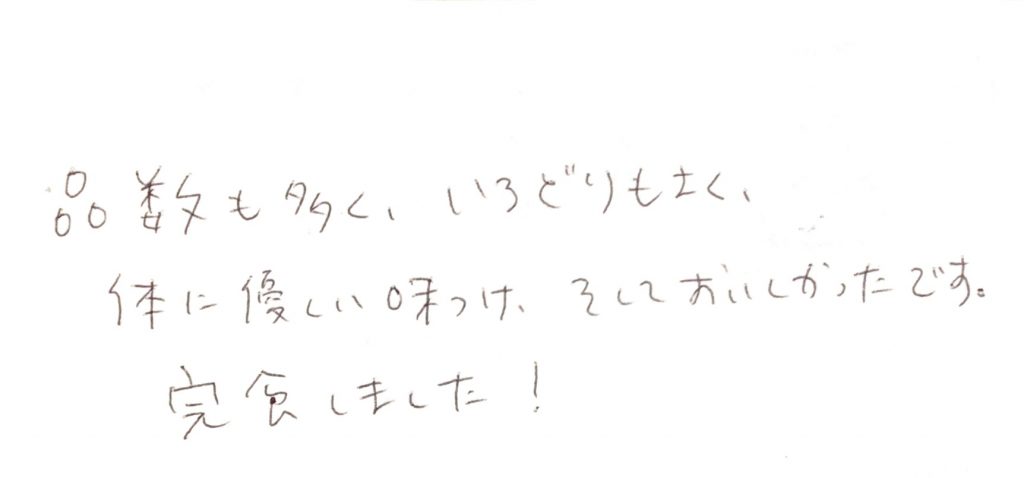 品数も多く、いろどりもよく、
体に優しい味つけ、そしておいしかったです。
完食しました!